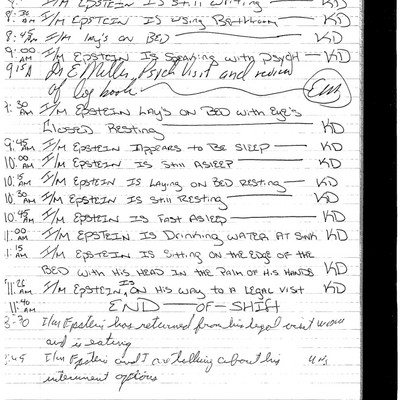 I/M EPSTEIN IS Still Writing — KD
8:30 AM I/M EPSTEIN IS USing Bathroom — KD
8:45 AM I/M lay's on BED — KD
9:00 AM I/M EPSTEIN IS Speaking with PSYCH — KD
9:15A Dr E Miller, Psych Visit and review
of log book
9:30 AM I/M EPSTEIN LAY'S ON BED with EYE'S
CLOSED RESTING — KD
9:45 AM I/M EPSTEIN APPEARS TO BE SLEEP — KD
10:00 AM I/M EPSTEIN IS Still ASLEEP — KD
10:15 AM I/M EPSTEIN IS LAYING ON BED RESTING — KD
10:30 AM I/M EPSTEIN IS Still RESTING — KD
10:45 AM I/M EPSTEIN IS FAST ASLEEP — KD
11:00 AM I/M EPSTEIN IS DRINKING WATER AT SINK KD
:15 AM I/M EPSTEIN IS Sitting ON the EDGE OF the
BED with His HEAD IN the PALM OF HIS HANDS KD
11:26 AM I/M EPSTEIN, IS ON His WAY to A LEGAL VISIT KD
11:40 AM END — OF — SHIFT
3:30 I/m Epstein has returned from his legal visit
and is eating
:45 I/m Epstein and I are talking about his
internment options